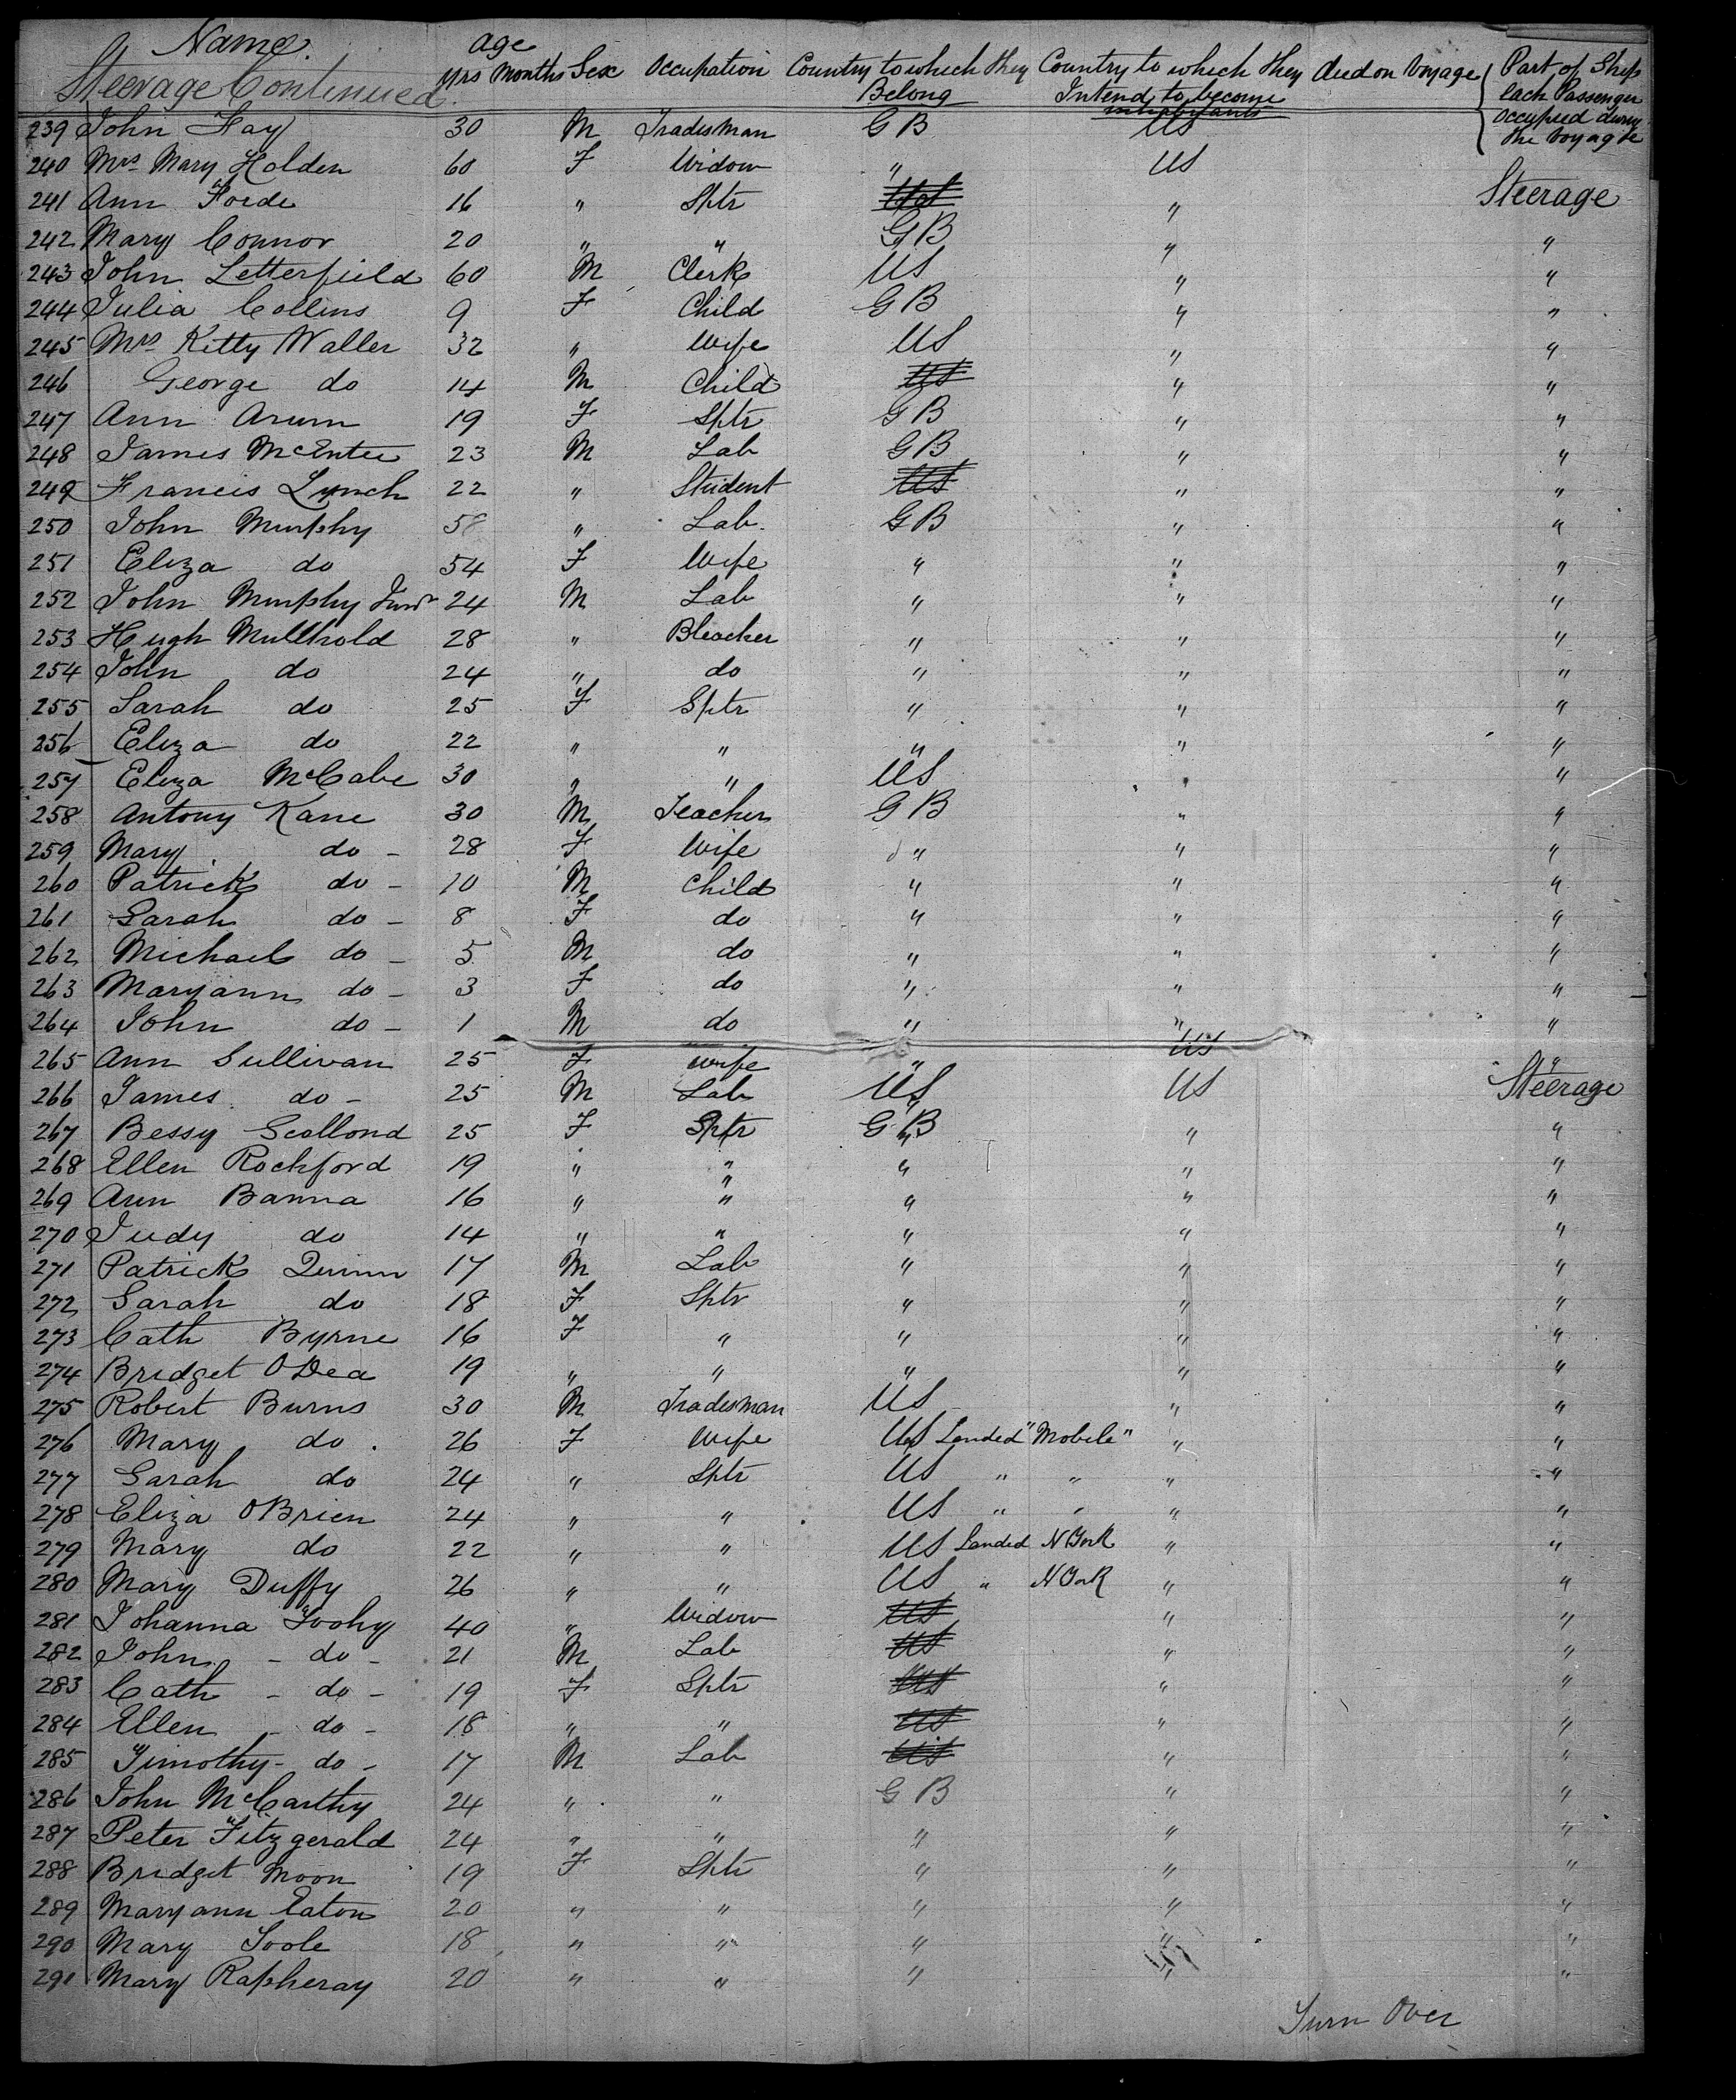 Name age
Steerage Continued yrs Months Sex Occupation Country to which they Belong Country to which they Intend to become inhabitants died on Voyage Part of Ship each Passenger occupied during the Voyage
239 John Hay 30 M Tradesman G B US
240 Mrs Mary Holden 60 F Widow " US
241 Ann Forde 16 " Sptr US " Steerage
242 Mary Connor 20 " " G B " "
243 John Letterfield 60 M Clerk US " "
244 Julia Collins 9 F Child G B " "
245 Mrs Kitty Waller 32 " Wife US " "
246 George do 14 M Child US " "
247 Ann Arum 19 F Sptr G B " "
248 James McEntee 23 M Lab G B " "
249 Francis Lynch 22 " Student US " "
250 John Murphy 58 " Lab. G B " "
251 Eliza do 54 F Wife " " "
252 John Murphy Junr 24 M Lab " " "
253 Hugh Mullhold 28 " Bleacher " " "
254 John do 24 " do " " "
255 Sarah do 25 F Sptr " " "
256 Eliza do 22 " " " " "
257 Eliza McCabe 30 " " US " "
258 Antony Kane 30 M Teacher G B " "
259 Mary do - 28 F Wife " " "
260 Patrick do - 10 M Child " " "
261 Sarah do - 8 F do " " "
262 Michael do - 5 M do " " "
263 Maryann do - 3 F do " " "
264 John do - 1 M do " " "
265 Ann Sullivan 25 F Wife " US "
266 James do - 25 M Lab US US Steerage
267 Bessy Scollond 25 F Sptr G B " "
268 Ellen Rockford 19 " " " " "
269 Ann Banna 16 " " " " "
270 Judy do 14 " " " " "
271 Patrick Quinn 17 M Lab " " "
272 Sarah do 18 F Sptr " " "
273 Cath Byrne 16 F " " " "
274 Bridget O'Dea 19 " " " " "
275 Robert Burns 30 M Tradesman US " "
276 Mary do. 26 F Wife US Landed "Mobile" " "
277 Sarah do 24 " Sptr US " " " "
278 Eliza O'Brien 24 " " US " " " "
279 Mary do 22 " " US Landed N York " "
280 Mary Duffy 26 " " US " N York " "
281 Johanna Toohy 40 " Widow US " "
282 John - do - 21 M Lab US " "
283 Cath - do - 19 F Sptr US " "
284 Ellen - do - 18 " " US " "
285 Timothy - do - 17 M Lab US " "
286 John McCarthy 24 " " G B " "
287 Peter Fitzgerald 24 " " " " "
288 Bridget Moon 19 F Sptr " " "
289 Maryann Eaton 20 " " " " "
290 Mary Toole 18 " " " " "
291 Mary Rapheray 20 " " " " "
Turn Over